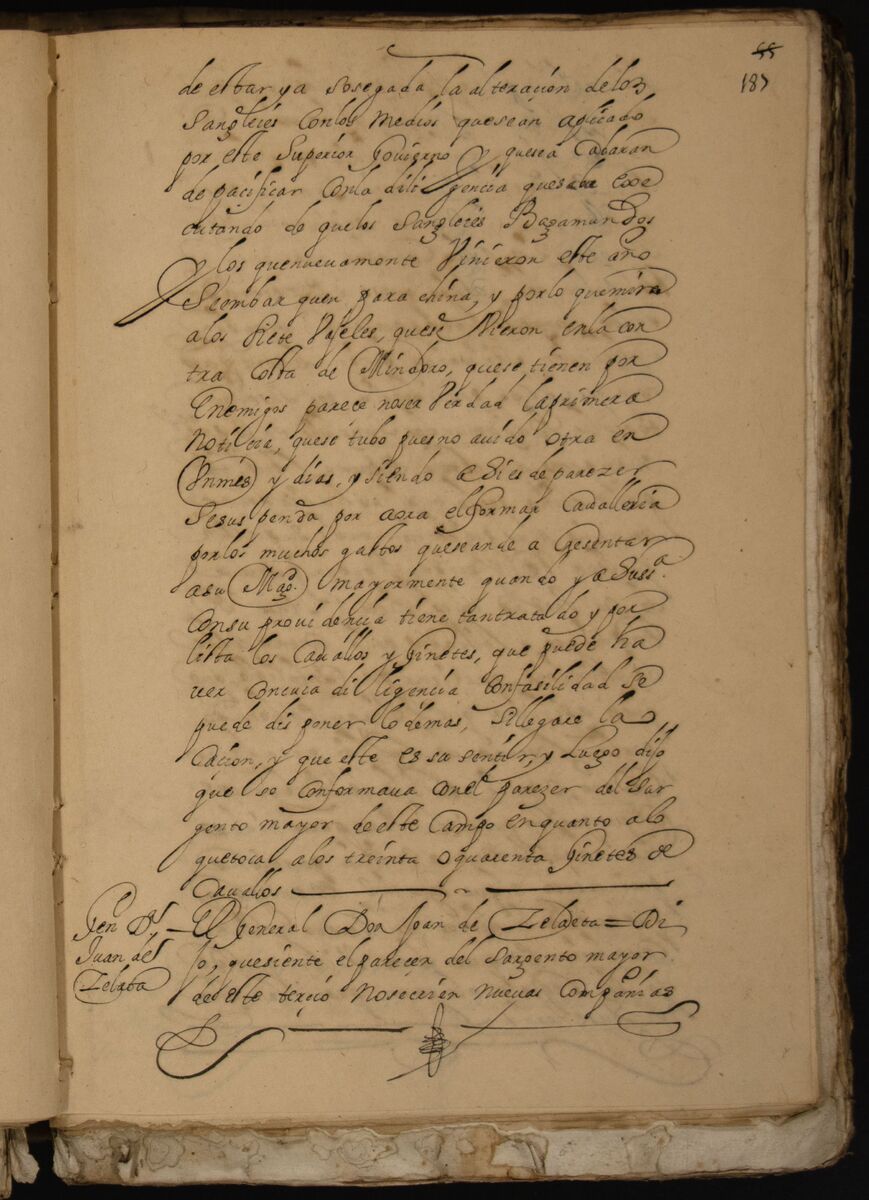 55
187
de estar ya sosegada la alteracion de los
Sangleies con los medios que sean aplicado
por este Superior Govierno y que sea Cavaran
de pacificar con la diligencia que sale exe
cutando de que los Sangleies Bagamundos
y los que nuevamente Vinieron este año
Se embarquen para china, y por lo que mira
a los siete Vajeles, que se Vieron en la con
tra costa de Mindoro, que se tienen por
Enemigos parece no ser Verdad la primera
noticia, que se tubo pues no avido otra en
Vn mes y dias, y siendo asi es de parezer
Se suspenda por aora el formar Cavalleria
por los muchos gastos que seande a Cresentar
a su Magd. mayormente quando ya
con su providencia tiene tan tratado y por
lista los Cavallos y Ginetes, que puede ha
ver con cuia diligencia con fasilidad se
puede disponer lo demas, si llegare la o
cacion, y que este es su sentir, y Luego dijo
que se conformava con el parezer del Sar
gento mayor de este Campo en quanto a lo
que toca a los treinta o quarenta Ginetes de
Cavallos
Gen Dn
Juan de
Zelaeta
El General Don Joan de Zelaeta = Di
jo, que siente el parecer del Sargento mayor
de este tercio no se crien nuevas Compañias